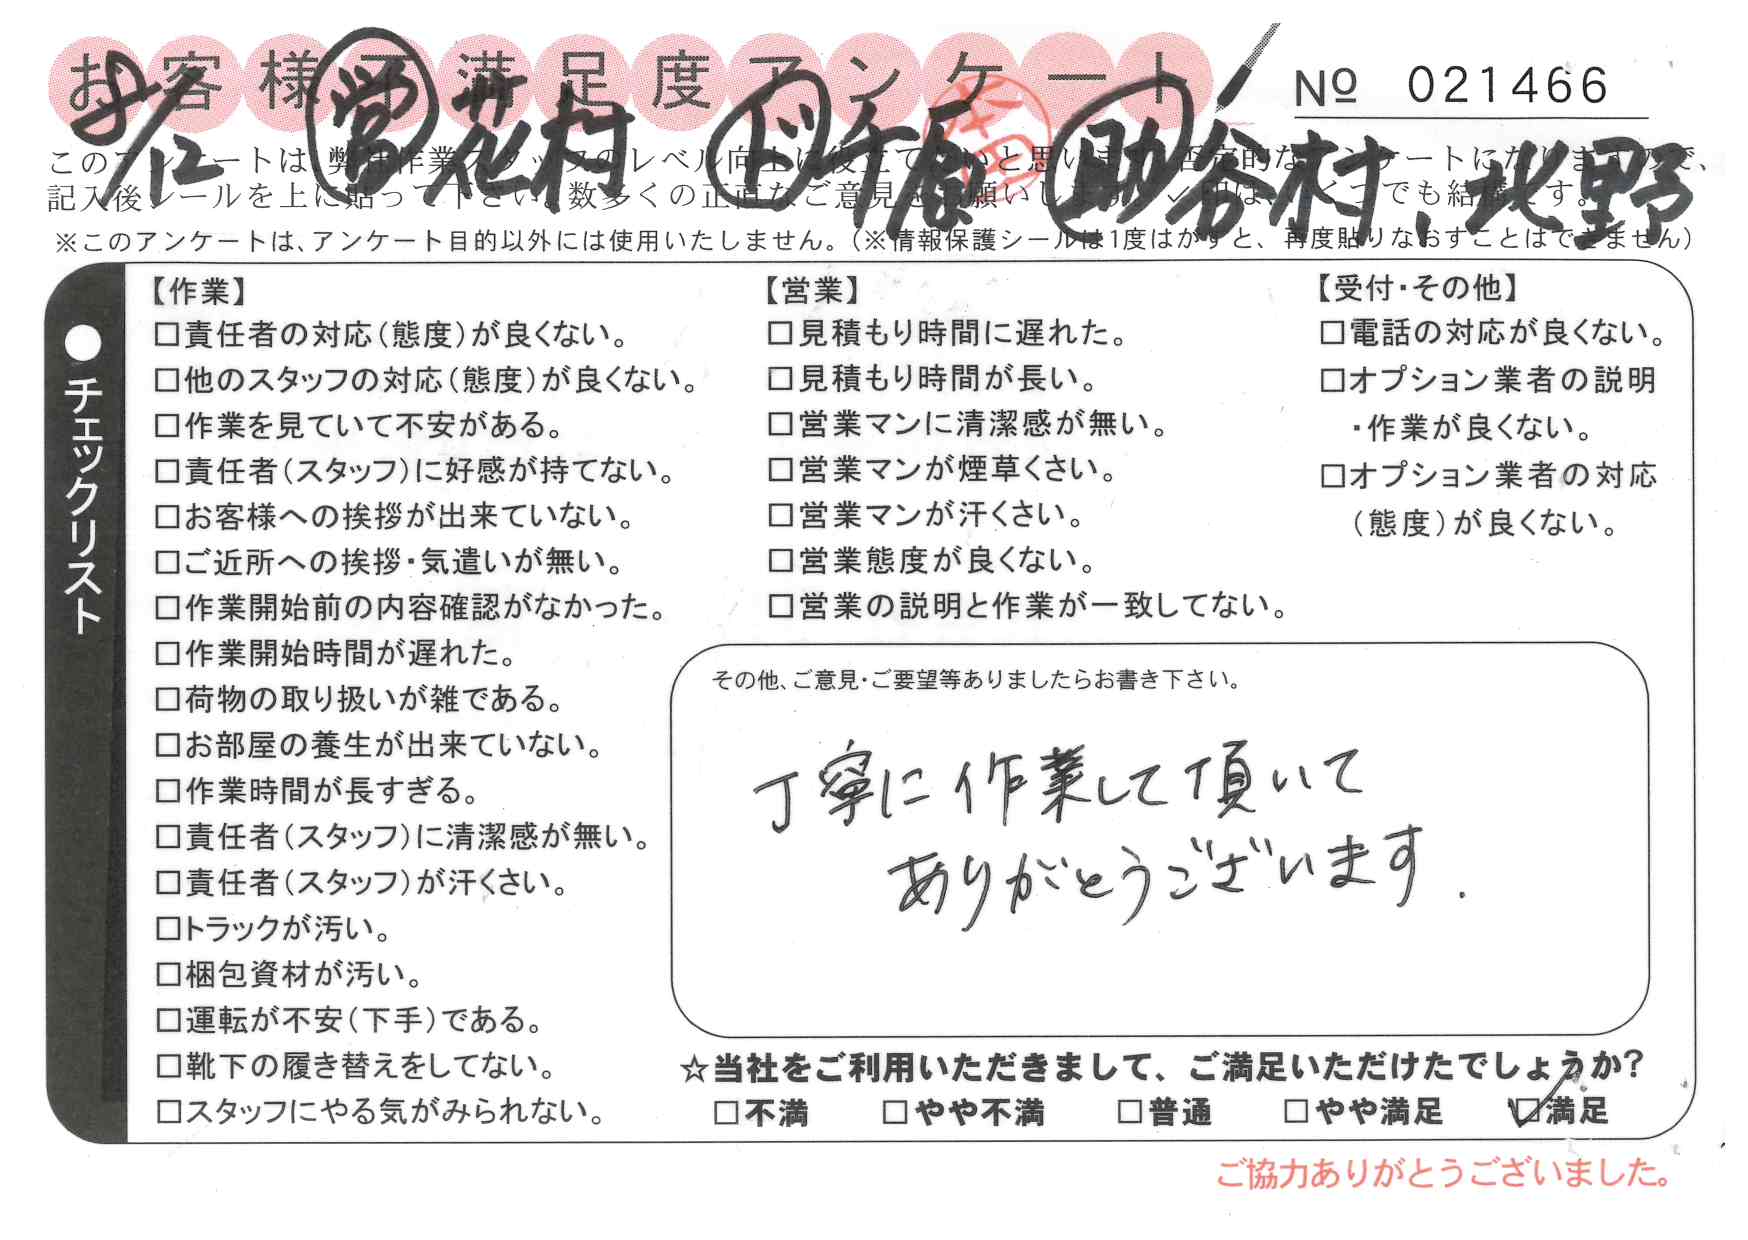 お客様不満足度アンケート
№ 021466
営 花村 ド 千原 助 谷村、北野
このアンケートは、弊社作業スタッフのレベル向上に役立てたいと思います。否定的なアンケートになりますので、
記入後シールを上に貼って下さい。数多くの正直なご意見をお願いします。✓印は、いくつでも結構です。
※このアンケートは、アンケート目的以外には使用いたしません。(※情報保護シールは1度はがすと、再度貼りなおすことはできません)
●チェックリスト
【作業】
□責任者の対応(態度)が良くない。
□他のスタッフの対応(態度)が良くない。
□作業を見ていて不安がある。
□責任者(スタッフ)に好感が持てない。
□お客様への挨拶が出来ていない。
□ご近所への挨拶・気遣いが無い。
□作業開始前の内容確認がなかった。
□作業開始時間が遅れた。
□荷物の取り扱いが雑である。
□お部屋の養生が出来ていない。
□作業時間が長すぎる。
□責任者(スタッフ)に清潔感が無い。
□責任者(スタッフ)が汗くさい。
□トラックが汚い。
□梱包資材が汚い。
□運転が不安(下手)である。
□靴下の履き替えをしてない。
□スタッフにやる気がみられない。
【営業】
□見積もり時間に遅れた。
□見積もり時間が長い。
□営業マンに清潔感が無い。
□営業マンが煙草くさい。
□営業マンが汗くさい。
□営業態度が良くない。
□営業の説明と作業が一致してない。
【受付・その他】
□電話の対応が良くない。
□オプション業者の説明
・作業が良くない。
□オプション業者の対応
(態度)が良くない。
その他、ご意見・ご要望等ありましたらお書き下さい。
丁寧に作業して頂いて
ありがとうございます.
☆当社をご利用いただきまして、ご満足いただけたでしょうか?
□不満 □やや不満 □普通 □やや満足 ☑満足
ご協力ありがとうございました。